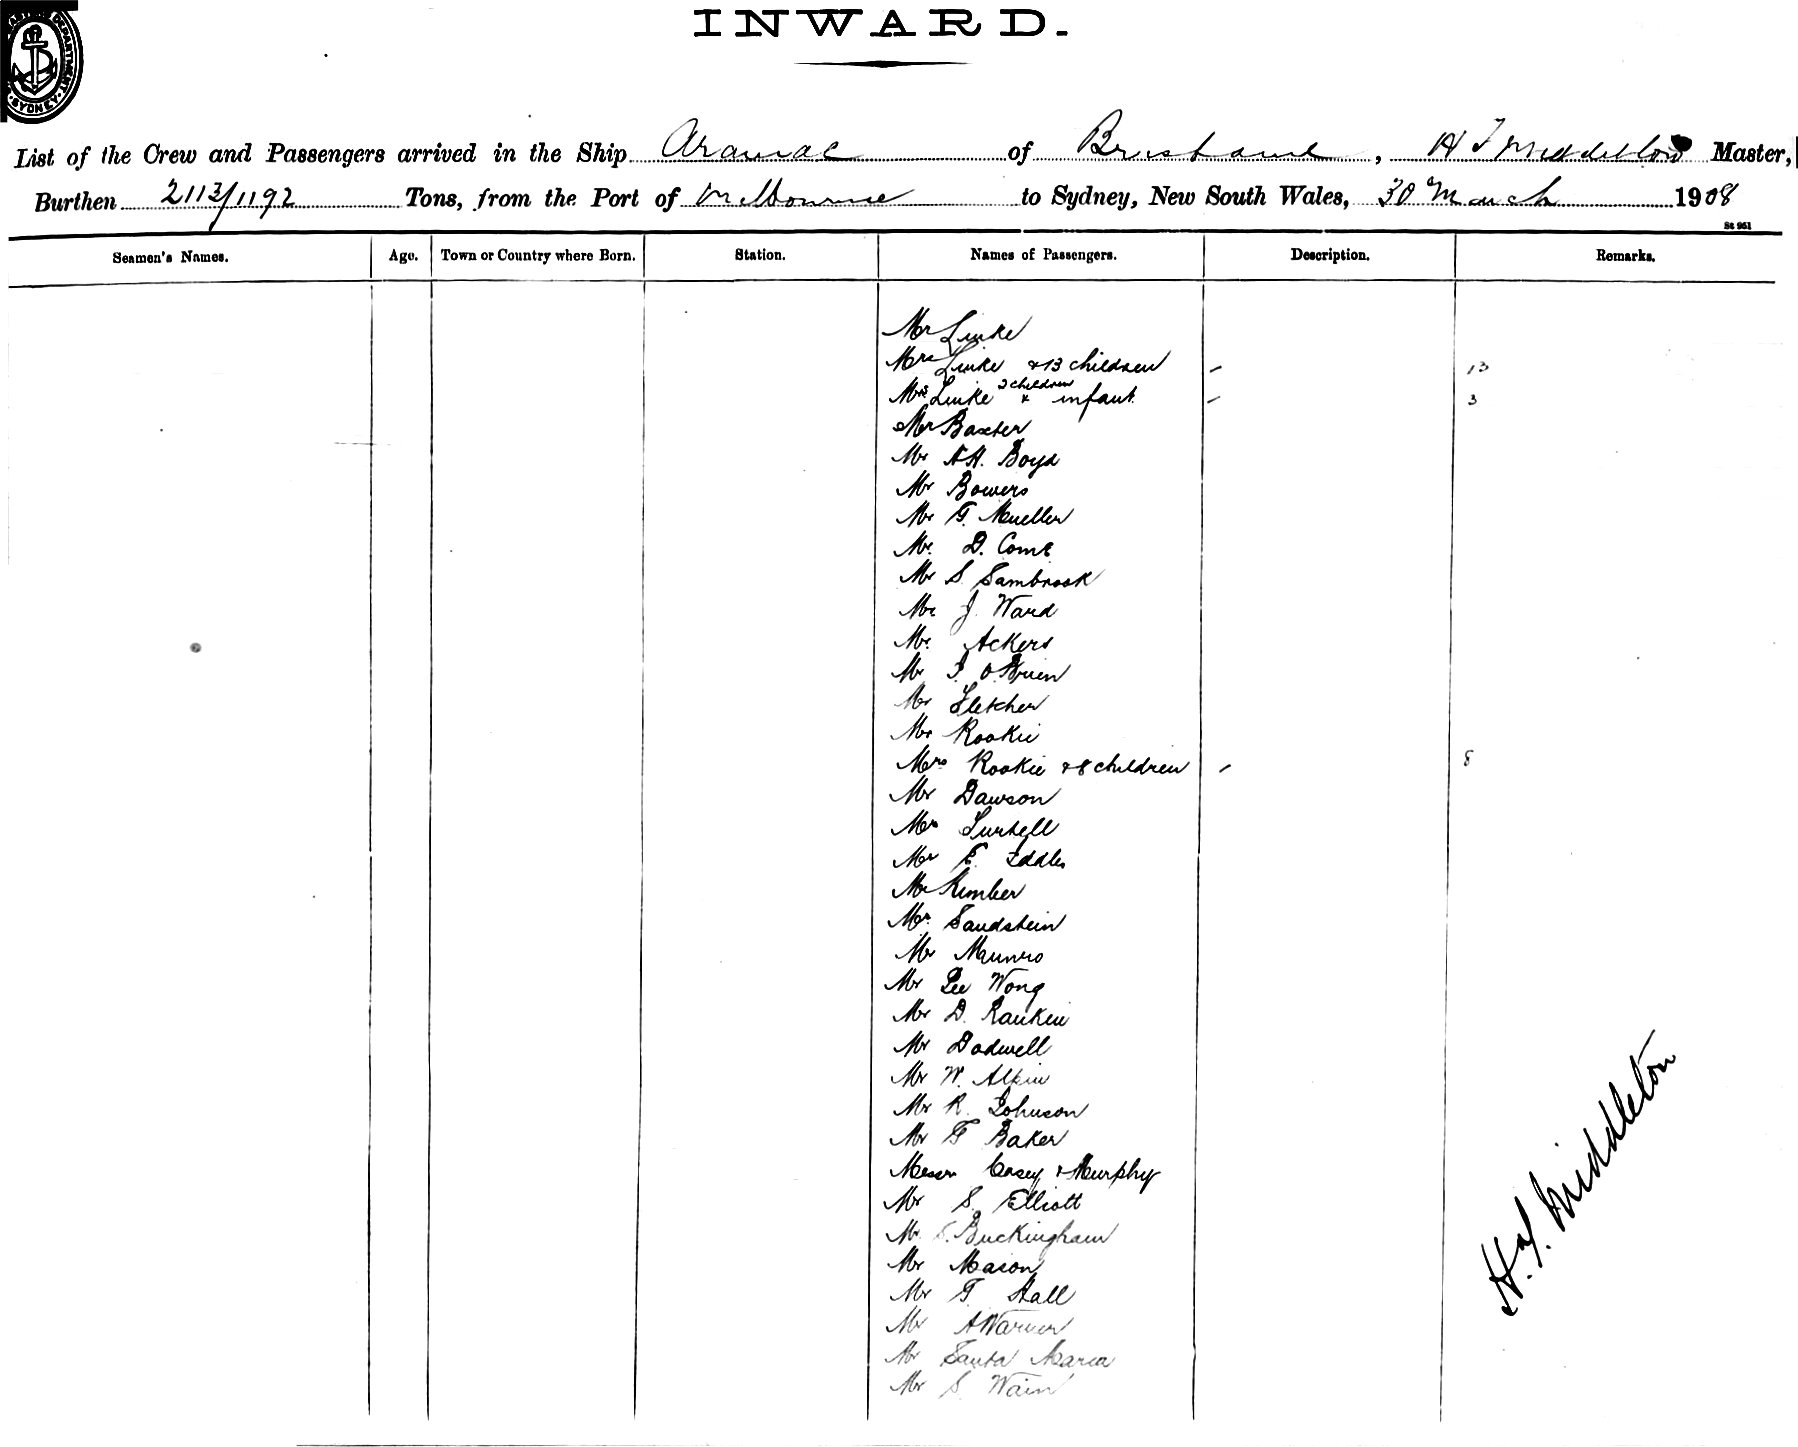 INWARD.
DEPARTMENT SYDNEY
List of the Crew and Passengers arrived in the Ship Aramac of Brisbane, H J Middleton Master,
Burthen 2113/1192 Tons, from the Port of Melbourne to Sydney, New South Wales, 30 March 1908
St 951
Seamen's Names. Age. Town or Country where Born. Station. Names of Passengers. Description. Remarks.
Mr Linke
Mrs Linke & 13 children - 13
Mrs Linke 2 children & infant - 3
Mr Baxter
Mr A.H. Boyd
Mr Bowers
Mr G. Mueller
Mr D. Come
Mr S. Sambrook
Mr J. Ward
Mr. Ackers
Mr O'Brien
Mr Fletcher
Mr Rookie
Mrs Rookie & 8 children - 8
Mr Dawson
Mr
Mr E. Eddles
Mr Kimber
Mr. Sandstein
Mr Maunro
Mr Lee Wong
Mr D. Rankin
Mr Dodwell
Mr W. Alpin
Mr R. Johnson
Mr G Baker
Messrs Casey & Murphy
Mr S. Elliott
Mr S. Buckingham
Mr Mason
Mr G. Hall
Mr A Warner
Mr Santa Maria
Mr S. Wain
H. J. Middleton